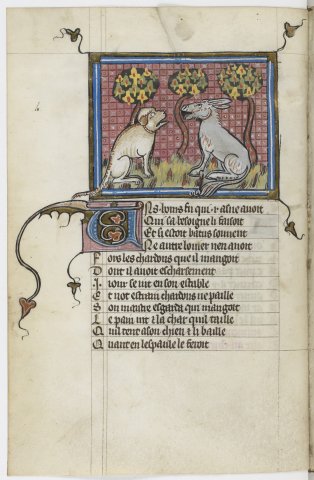 Uns homs fu qui .i. asne auoit
Qui sa besoigne li faisoit
Et si estoit batus souuent
Ne autre louier nen auoit
Fors les chardons que il mangoit
Dont il auoit escharsement
.I. iour se uit en son estable
Et not estrain chardons ne paille
Son maistre esgarda qui mangoit
Le pain uit la char quil taille
Quil tent a son chien li baille
Quant en lespaule le feroit